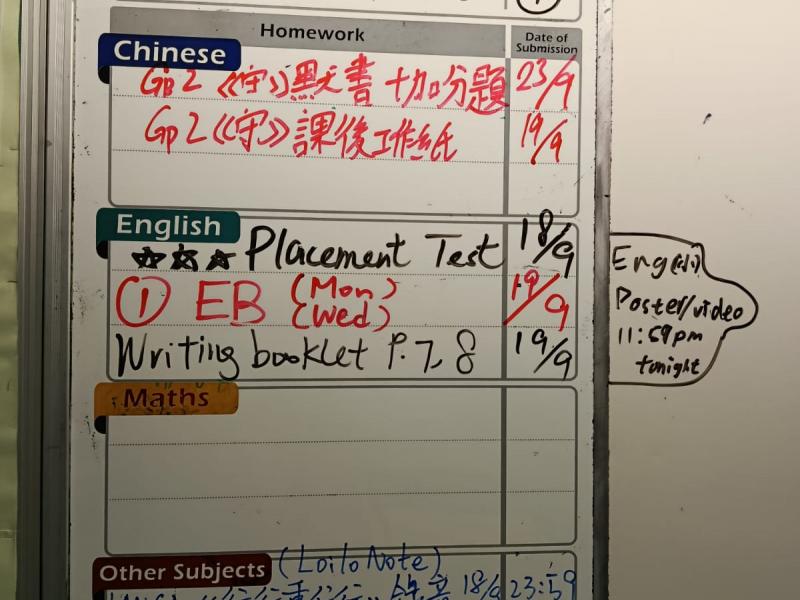 Homework
Date of Submission
Chinese
Gp 2 《守》默書 +加分題 23/9
Gp 2 《守》課後工作紙 19/9
English
☆☆☆ Placement Test 18/9
① EB (Mon) (Wed) 19/9
Writing booklet P.7, 8 19/9
Eng
Poster/video
11:59pm
tonight
Maths
Other Subjects (LoiloNote)
18/9 23:59